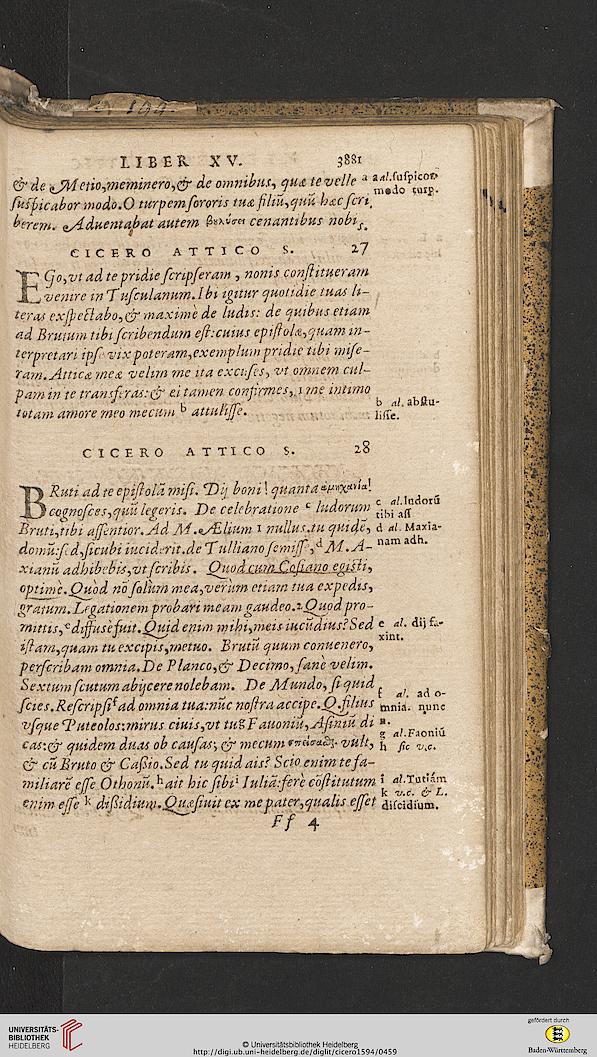 LIBER XV. 3881
& de Metio, meminero, & de omnibus, quæ te velle a
suspicabor modo. O turpem sororis tuæ filiũ, quũ hæc scri
berem. Aduentabat autem βȣλύσει cenantibus nobis.
a al. suspicor
modo turp.
CICERO ATTICO S. 27
EGo, vt ad te pridie scripseram, nonis constitueram
venire in Tusculanum. Ibi igitur quotidie tuas li-
teras exspectabo, & maximè de ludis: de quibus etiam
ad Brutum tibi scribendum est: cuius epistolæ, quam in-
terpretari ipse vix poteram, exemplum pridie tibi mise-
ram. Atticæ meæ velim me ita excuses, vt omnem cul-
pam in te transferas: & ei tamen confirmes, me intimo
totam amore meo mecum b attulisse.
b al. abstu-
lisse.
CICERO ATTICO S. 28
BRuti ad te epistolã misi. Dij boni! quanta ἀμηχανία!
cognosces, quũ legeris. De celebratione c ludorum
Bruti, tibi assentior. Ad M. Ælium 1 nullus. tu quidẽ,
domũ: sed, sicubi inciderit. de Tulliano semisse, d M. A-
xianũ adhibebis, vt scribis. Quod cum Cosiano egisti,
optime. Quòd nõ solùm mea, verùm etiam tua expedis,
gratum. Legationem probari meam gaudeo. 2 Quod pro-
mittis, e diffusè fuit. Quid enim mihi, meis iucũdius? Sed
istam, quam tu excipis, metuo. Brutũ quum conuenero,
perscribam omnia. De Planco, & Decimo, sanè velim.
Sextum scutum abijcere nolebam. De Mundo, si quid
scies. Rescripsi f ad omnia tua: nũc nostra accipe. Q. filius
vsque Puteolos: mirus ciuis, vt tu g Fauoniũ, Asiniũ di
cas: & quidem duas ob causas, & mecum σπείσαϑ. vult,
& cũ Bruto & Cassio. Sed tu quid ais? Scio enim te fa-
miliarẽ esse Othonũ. h ait hic sibi i Iuliã: ferè cõstitutum
enim esse k dißidium. Quæsiuit ex me pater, qualis esset
c al. ludorũ
tibi ass
d al. Maxia-
nam adh.
e al. dij fa-
xint.
f al. ad o-
mnia. nunc
n.
g al. Faoniũ
h sic v.c.
i al. Tutiam
k v.c. & L.
discidium.
Ff 4
UNIVERSITÄTS-
BIBLIOTHEK
HEIDELBERG
© Universitätsbibliothek Heidelberg
http://digi.ub.uni-heidelberg.de/diglit/cicero1594/0459
gefördert durch
Baden-Württemberg